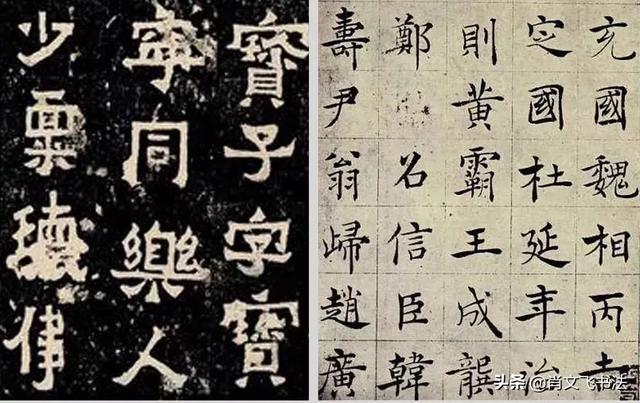 寶子字寶
寧同樂人
少稟瓌偉
充國魏相丙吉
定國杜延年治
則黃霸王成龔
鄭召信臣韓
壽尹翁歸趙廣
头条 @肖文飞书法